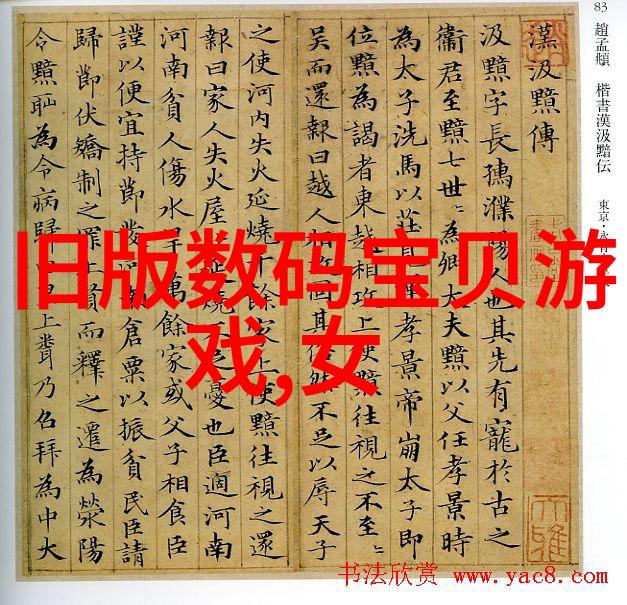 83 趙孟頫 楷書漢汲黯伝 東京・永
漢汲黯傳
汲黯字長孺濮陽人也其先有寵於古之
衞君至黯七世世為卿大夫黯以父任孝景時
為太子洗馬以莊見孝景帝崩太子即
位黯為謁者東越相攻上使黯往視之不至
吳而還報曰越人相攻固其俗然不足以辱天子
之使河內失火延燒千餘家上使黯往視之還
報曰家人失火屋延燒不足憂也臣適河南
河南貧人傷水旱萬餘家或父子相食臣
謹以便宜持節發河南倉粟以振貧民臣請
歸節伏矯制之罪上賢而釋之遷為滎陽
令黯恥為令病歸上聞乃召拜為中大
旧版数码宝贝游
戏,女
书法欣赏 www.yac8.com